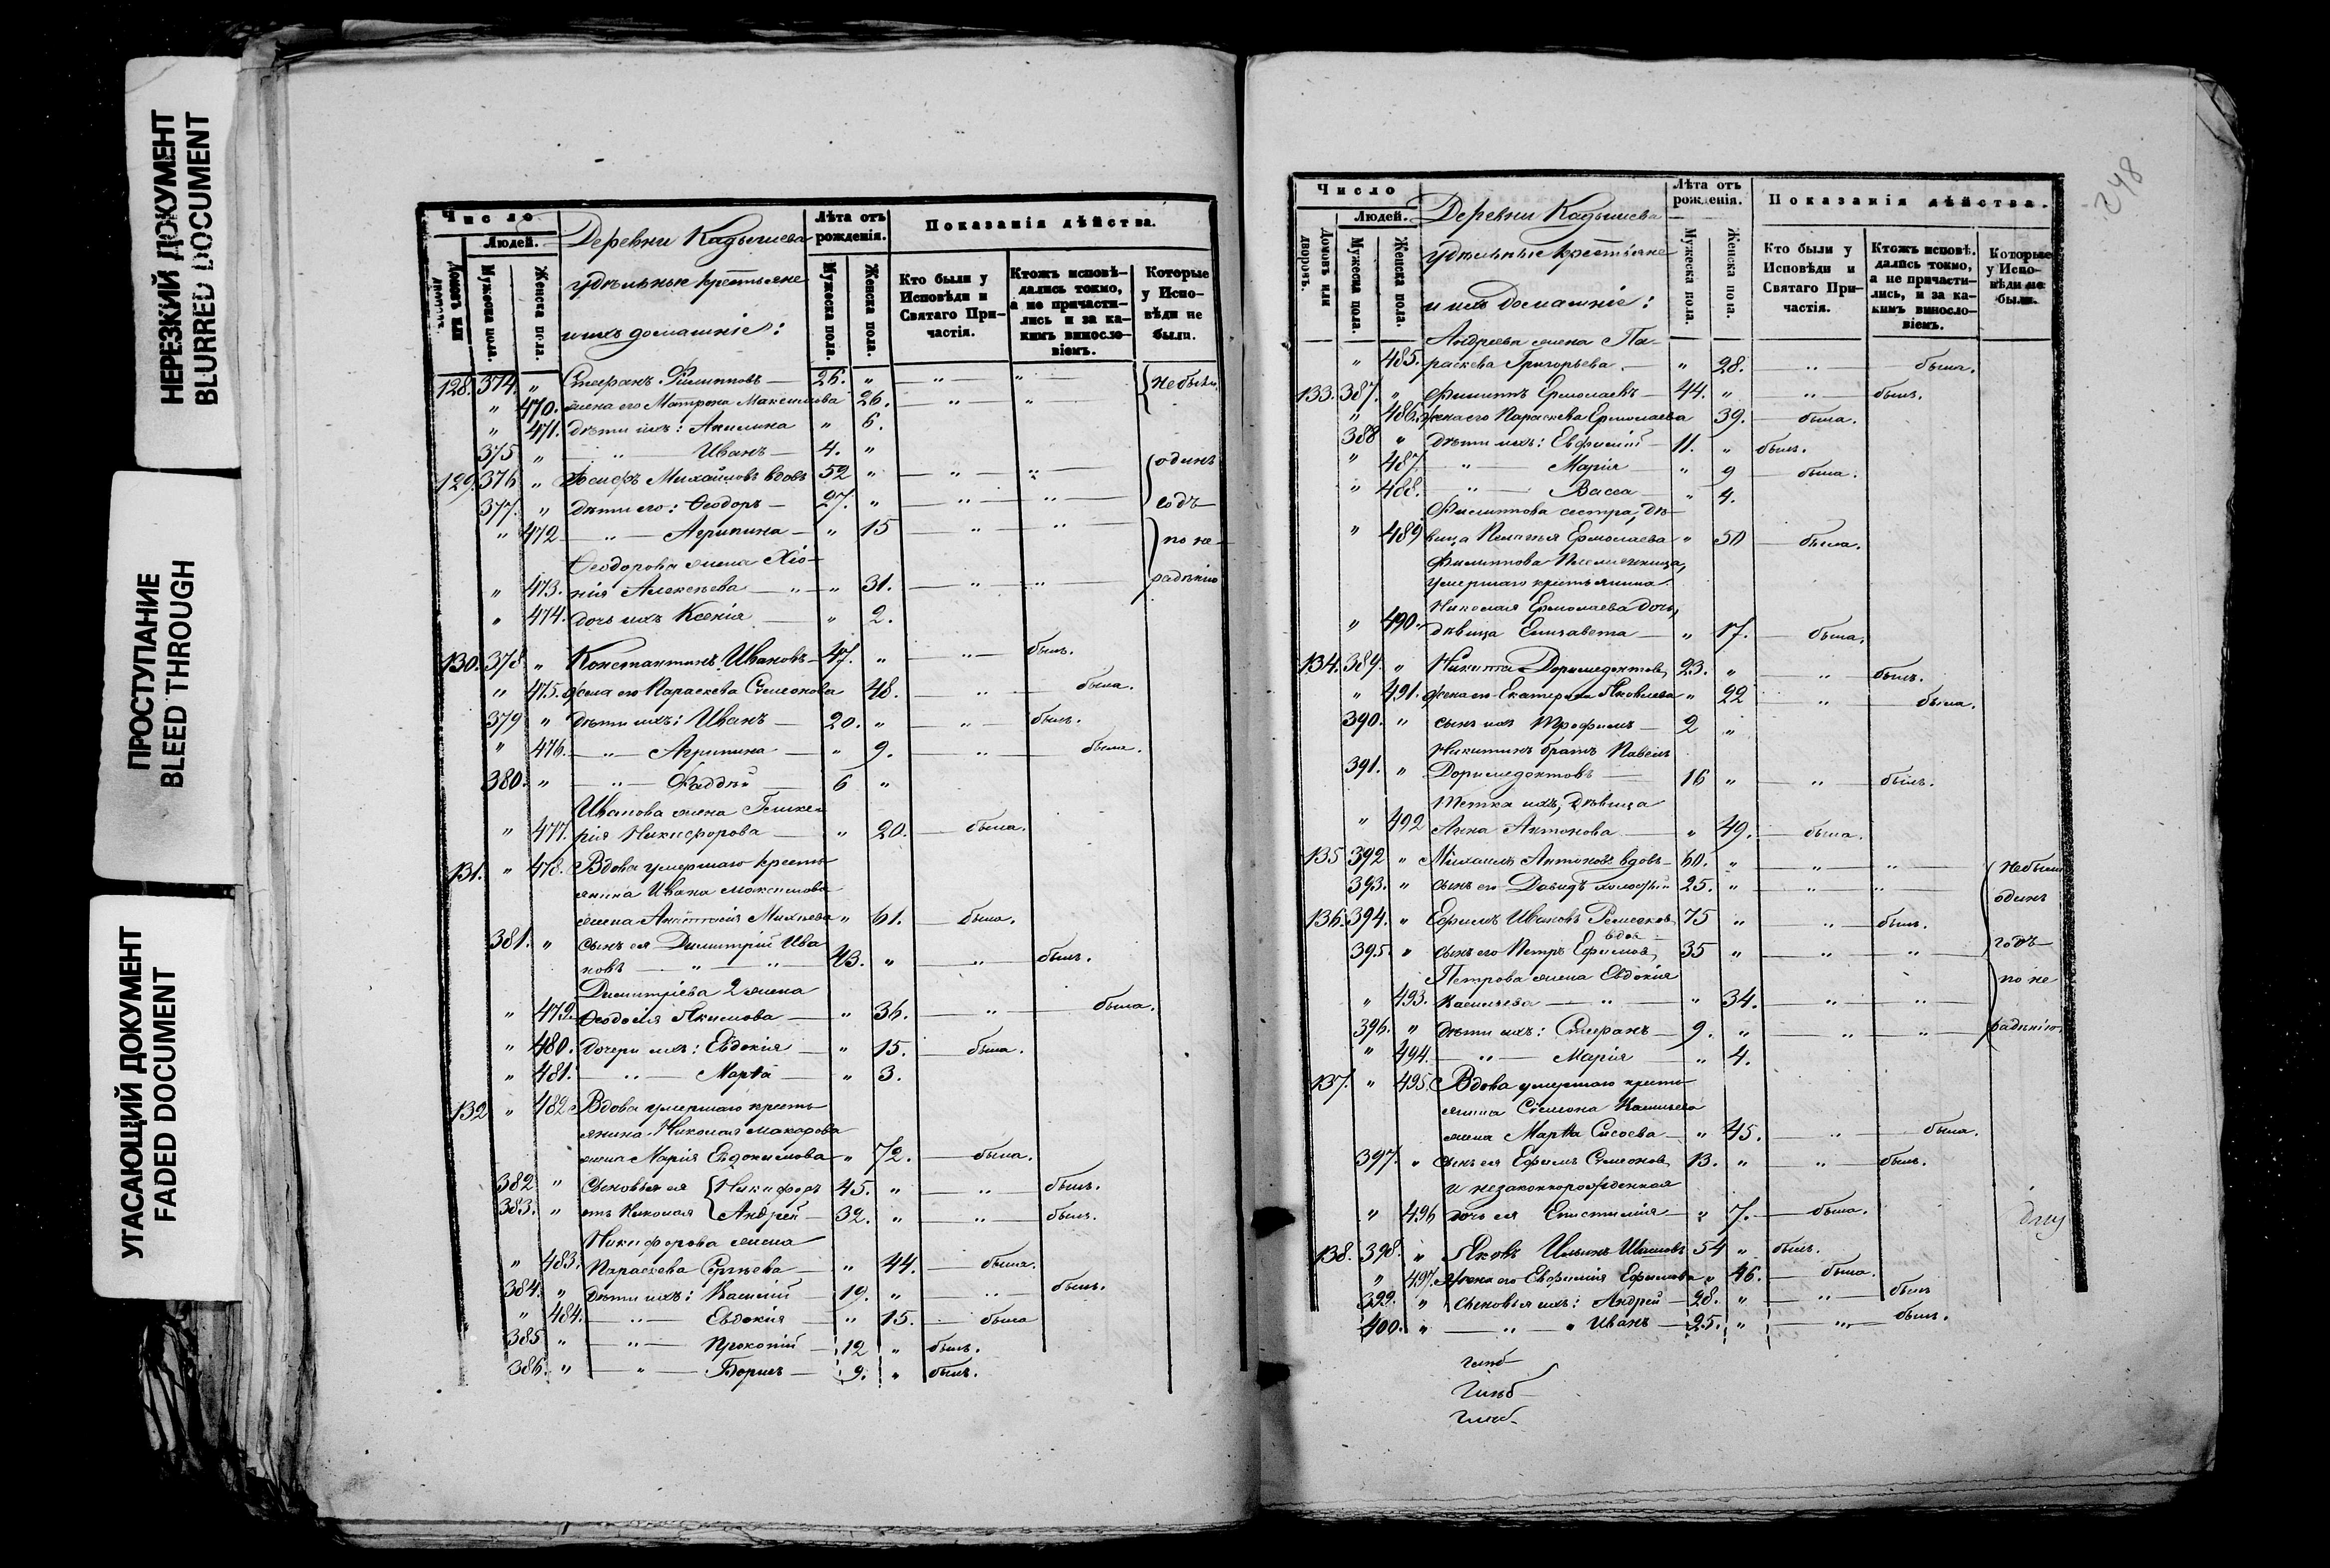 НЕРЕЗКИЙ ДОКУМЕНТ
BLURRED DOCUMENT
ПРОСТУПАНИЕ
BLEED THROUGH
УГАСАЮЩИЙ ДОКУМЕНТ
FADED DOCUMENT
Число
Людей.
Домовъ или дворовъ.
Мужеска пола.
Женска пола.
Деревни Кадышева
удѣльные крестьяне
и ихъ домашніе:
Лѣта отъ рожденія.
Мужеска пола.
Женска пола.
Показанія дѣйства.
Кто были у Исповѣди и Святаго Причастія.
Ктожъ исповѣдались токмо, а не причастились и за какимъ винословіемъ.
Которые у Исповѣди не были.
128. 374. " Стефанъ Филипповъ — 26. " — " — " — не были
" 470. жена его Матрона Максимова 26. — " — "
" 471. дѣти ихъ: Акилина " 6.
375 " — " — Иванъ — 4. "
129. 376 " Іосифъ Михайловъ вдовъ 52 " — " — " — одинъ
377. " дѣти его: Ѳеодоръ — 27. " — " — " — годъ
" 472 — " — Агрипина — " 15 — " — " — по не
Ѳеодорова жена Хіо-
" 473. нія Алексѣева — " — " 31. — " — " — радѣнію
" 474. дочь ихъ Ксенія — " 2.
130. 378. " Константинъ Ивановъ — 47. " — " — былъ.
" 475. жена его Параскева Симеонова 48. — " — была.
379 " дѣти ихъ: Иванъ — 20. " — " — былъ.
" 476. — " — Агрипина — " 9. — " — была.
380. " — " — Фаддѣй — 6 "
Иванова жена Глике-
" 477. рія Никифорова — " 20. — была.
131. " 478. Вдова умершаго кресть-
янина Ивана Максимова
жена Анастасія Михѣева " 61. — была.
381. " сынъ ея Димитрій Ива
новъ — " — " 43. " — " — былъ.
Димитріева 2 жена
" 479. Ѳеодосія Акимова — " 36. — " — была.
" 480. дочери ихъ: Евдокія — " 15. — была.
" 481. — " — Марѳа — " 3.
132 " 482 Вдова умершаго кресть-
янина Николая Макарова
жена Марія Евдокимова " 72. — была.
382 " сыновья ея Никифоръ 45. " — " — былъ.
383. " отъ Николая Андрей — 32. " — " — былъ.
Никифорова жена
" 483. Параскева Сергѣева — " 44. — была.
384. " дѣти ихъ: Василій — 19. " — " — былъ.
" 484. — " — Евдокія — " 15. — была
385 " — " — Прокопій — 12 " былъ.
386. " — " — Борисъ — 9. " былъ.
248
Число
Людей.
Домовъ или дворовъ.
Мужеска пола.
Женска пола.
Деревни Кадышева
удѣльные крестьяне
и ихъ домашніе:
Лѣта отъ рожденія.
Мужеска пола.
Женска пола.
Показанія дѣйства.
Кто были у Исповѣди и Святаго Причастія.
Ктожъ исповѣдались токмо, а не причастились, и за какимъ винословіемъ.
Которые у Исповѣди не были.
Андреева жена Па-
" 485. раскева Григорьева — " 28. — " — была.
133. 387. " Филиппъ Ермолаевъ — 44. " — " — былъ.
" 486. жена его Параскева Ермолаева 39. — была.
388 " дѣти ихъ: Евфимій — 11. " былъ.
" 487. — " — Марія — " 9 — была.
" 488. — " — Васса — " 4.
Филиппова сестра, дѣ-
" 489 вица Пелагія Ермолаева " 50 — была.
Филиппова племянница,
умершаго крестьянина
Николая Ермолаева дочь,
" 490. дѣвица Елизавета — " 17. — была.
134. 389. " Никита Доримедонтовъ 23. " — " — былъ.
" 491. жена его Екатерина Яковлева " 22 — " — была.
390. " сынъ ихъ Трофимъ — 2 "
Никитинъ братъ Павелъ
391. " Доримедонтовъ — 16 " — " — былъ.
тетка ихъ, дѣвица
" 492 Анна Антонова — " 49. — была.
135 392 " Михаилъ Антоновъ вдовъ — 60. " — " — " — не были
393. " сынъ его Давидъ холостый 25. " — " — " одинъ
136. 394. " Ефимъ Ивановъ вдов 75 " — " — былъ.
395. " сынъ его Петръ Ефимовъ 35 " — " — " — годъ
Петрова жена Евдокія по не
" 493. Васильева — " — " 34. — " — "
396. " дѣти ихъ: Стефанъ — 9. " — " — " — радѣнію
" 494. — " — Марія — " 4.
137. " 495. Вдова умершаго кресть-
янина Симеона Васильева
жена Марѳа Сисоева — " 45. — " — была.
397. " сынъ ея Ефимъ Симеоновъ 13. " — " — былъ.
и незаконнорожденная
" 496 дочь ея Епистимія — " 7. — была.
138. 398. " Яковъ Ильинъ 54 " былъ.
" 497. жена его Евфимія Ефимова " 46. — была.
399. " сыновья ихъ: Андрей — 28. " — " — былъ
400. " — " — " Иванъ — 25. " — " — былъ.